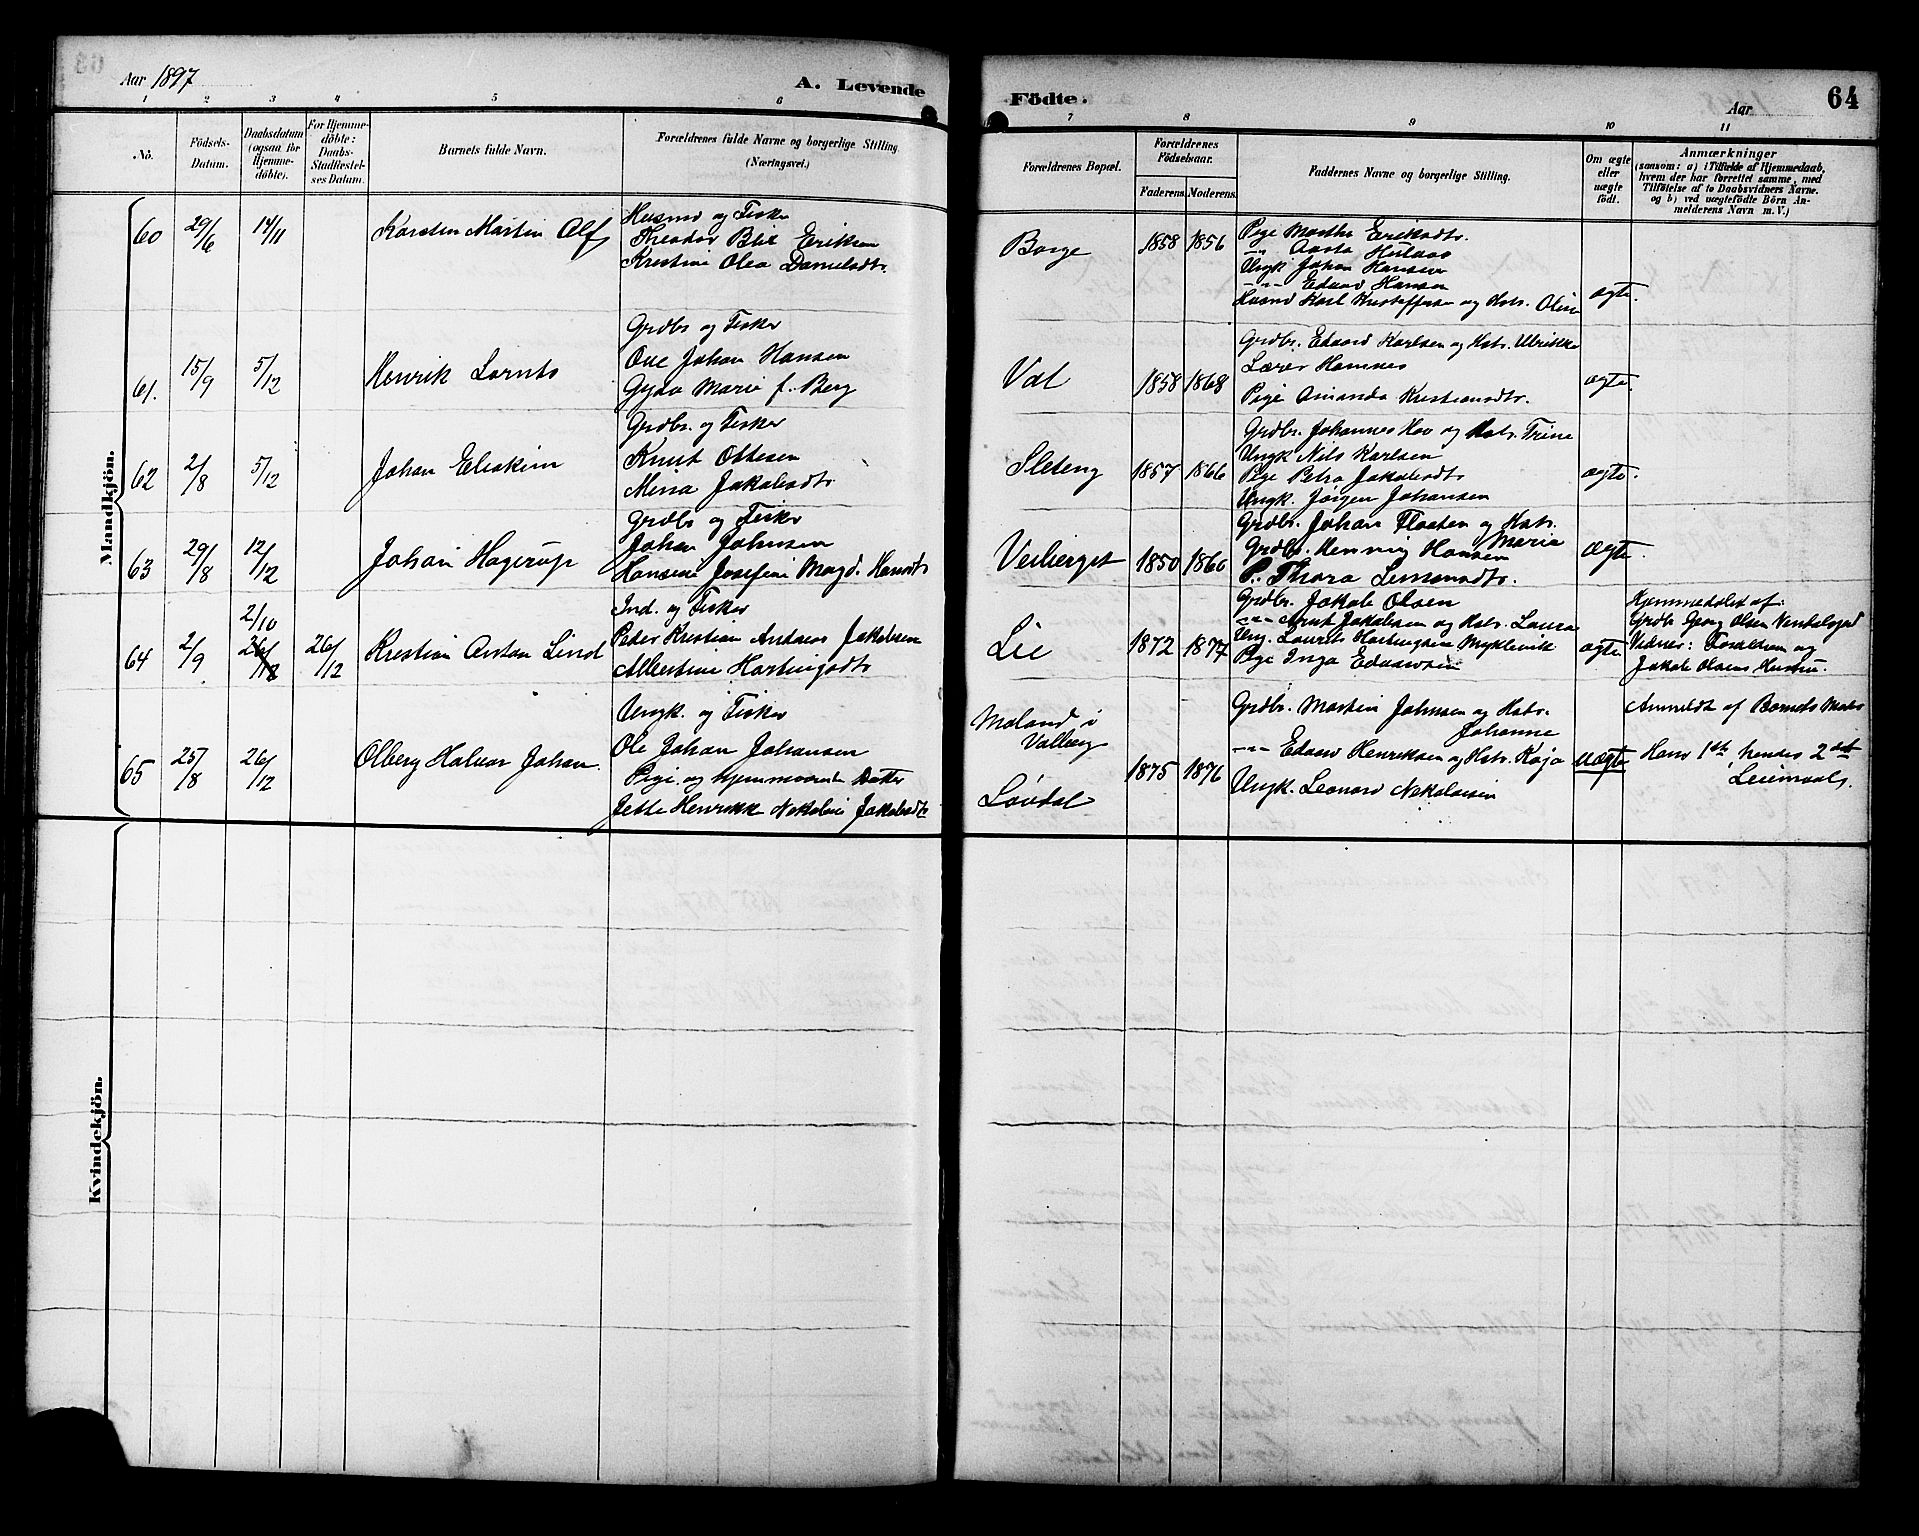 Aar 1897
A. Levende
Födte.
Aar
64
1 2 3 4 5 6 7 8 9 10 11
No.
Födsels-Datum.
Daabsdatum (ogsaa for Hjemme-döbte).
For Hjemme-döbte: Daabs-Stadfæstel-ses Datum.
Barnets fulde Navn.
Forældrenes fulde Navne og borgerlige Stilling (Næringsvei.)
Forældrenes Bopæl.
Forældrenes Födselsaar.
Faderens. Moderens.
Faddernes Navne og borgerlige Stilling.
Om ægte eller uægte født.
Anmærkninger
(saasom: a) i Tilfælde af Hjemmedaab, hvem der har forrettet samme, med Tilföielse af to Daabsvidners Navne. og b) ved uægtefödte Börn Anmelderens Navn m. V.)
Mandkjön.
60 29/6 14/11 Karsten Martin Olf
Husmd og Fisker
Theodor Blix Eriksen
Kristine Olea Danielsdtr.
Borge 1858 1856
Pige Marthe Eriksdtr.
-"- Aasta Hutaas
Ungk Johan Hansen
-"- Edvard Hansen
Husmd Karl Kristoffersen og Hstr. Oline
ægte.
61. 15/9 5/12 Henrik Lornts
Grdbr og Fisker
Ove Johan Hansen
Gyda Marie f. Berg
Val 1858 1868
Grdbr. Edvard Karlsen og Hstr. Ulrikke
Lærer Hamnes
Pige Amanda Kristiansdtr.
ægte.
62 2/8 5/12 Johan Eliakim
Grdbr. og Fisker
Knut Ottesen
Mina Jakobsdtr
Sleteng 1857 1866
Grdbr. Johannes Hov og Hstr. Trine
Ungk Nils Karlsen
Pige Petra Jakobsdtr
Ungk. Jørgen Johansen
ægte.
63 29/8 12/12 Johan Hagerup
Grdbr og Fisker
Johan Johnsen
Hansine Josefine Magd. Hansdtr
Veiberget 1850 1860
Grdbr. Johan Floaten og Hstr. Maria
Grdbr. Henning Hansen
P. Thora Simonsdtr.
Ægte.
64 2/9 2/10 26/12 26/12 Kristian Anton Lind
Ind. og Fisker
Peder Kristian Andreas Jakobsen
Albertine Hartvigsdtr
Lie 1872 1877
Grdbr. Jakob Olsen
-"- Arnt Jakobsen og Hstr. Laura
Ung. Laurits Hartvigsen Myklevik
Pige Inga Edvardsen
ægte
Hjemmedøbt af:
Grdbr Georg Olsen Vendalsjord
Vidner: Forældrene og
Jakob Olsens Hustru.
65 25/8 26/12 Olberg Halvor Johan.
Ungk. og Fisker
Ole Johan Johansen
Pige og hjemmeværende Datter
Jette Henrikke Nikoline Jakobsdtr
Moland i Valberg
Løvdal
1875 1876
Grdbr. Martin Johnsen og Hstr. Johanne
-"- Edvard Henriksen og Hstr. Kaja
Ungk. Leonard Nikolaisen
uægte
Anmeldt af Barnets Moder
Hans 1ste, hendes 2det Leiermaal.
Kvindekjön.